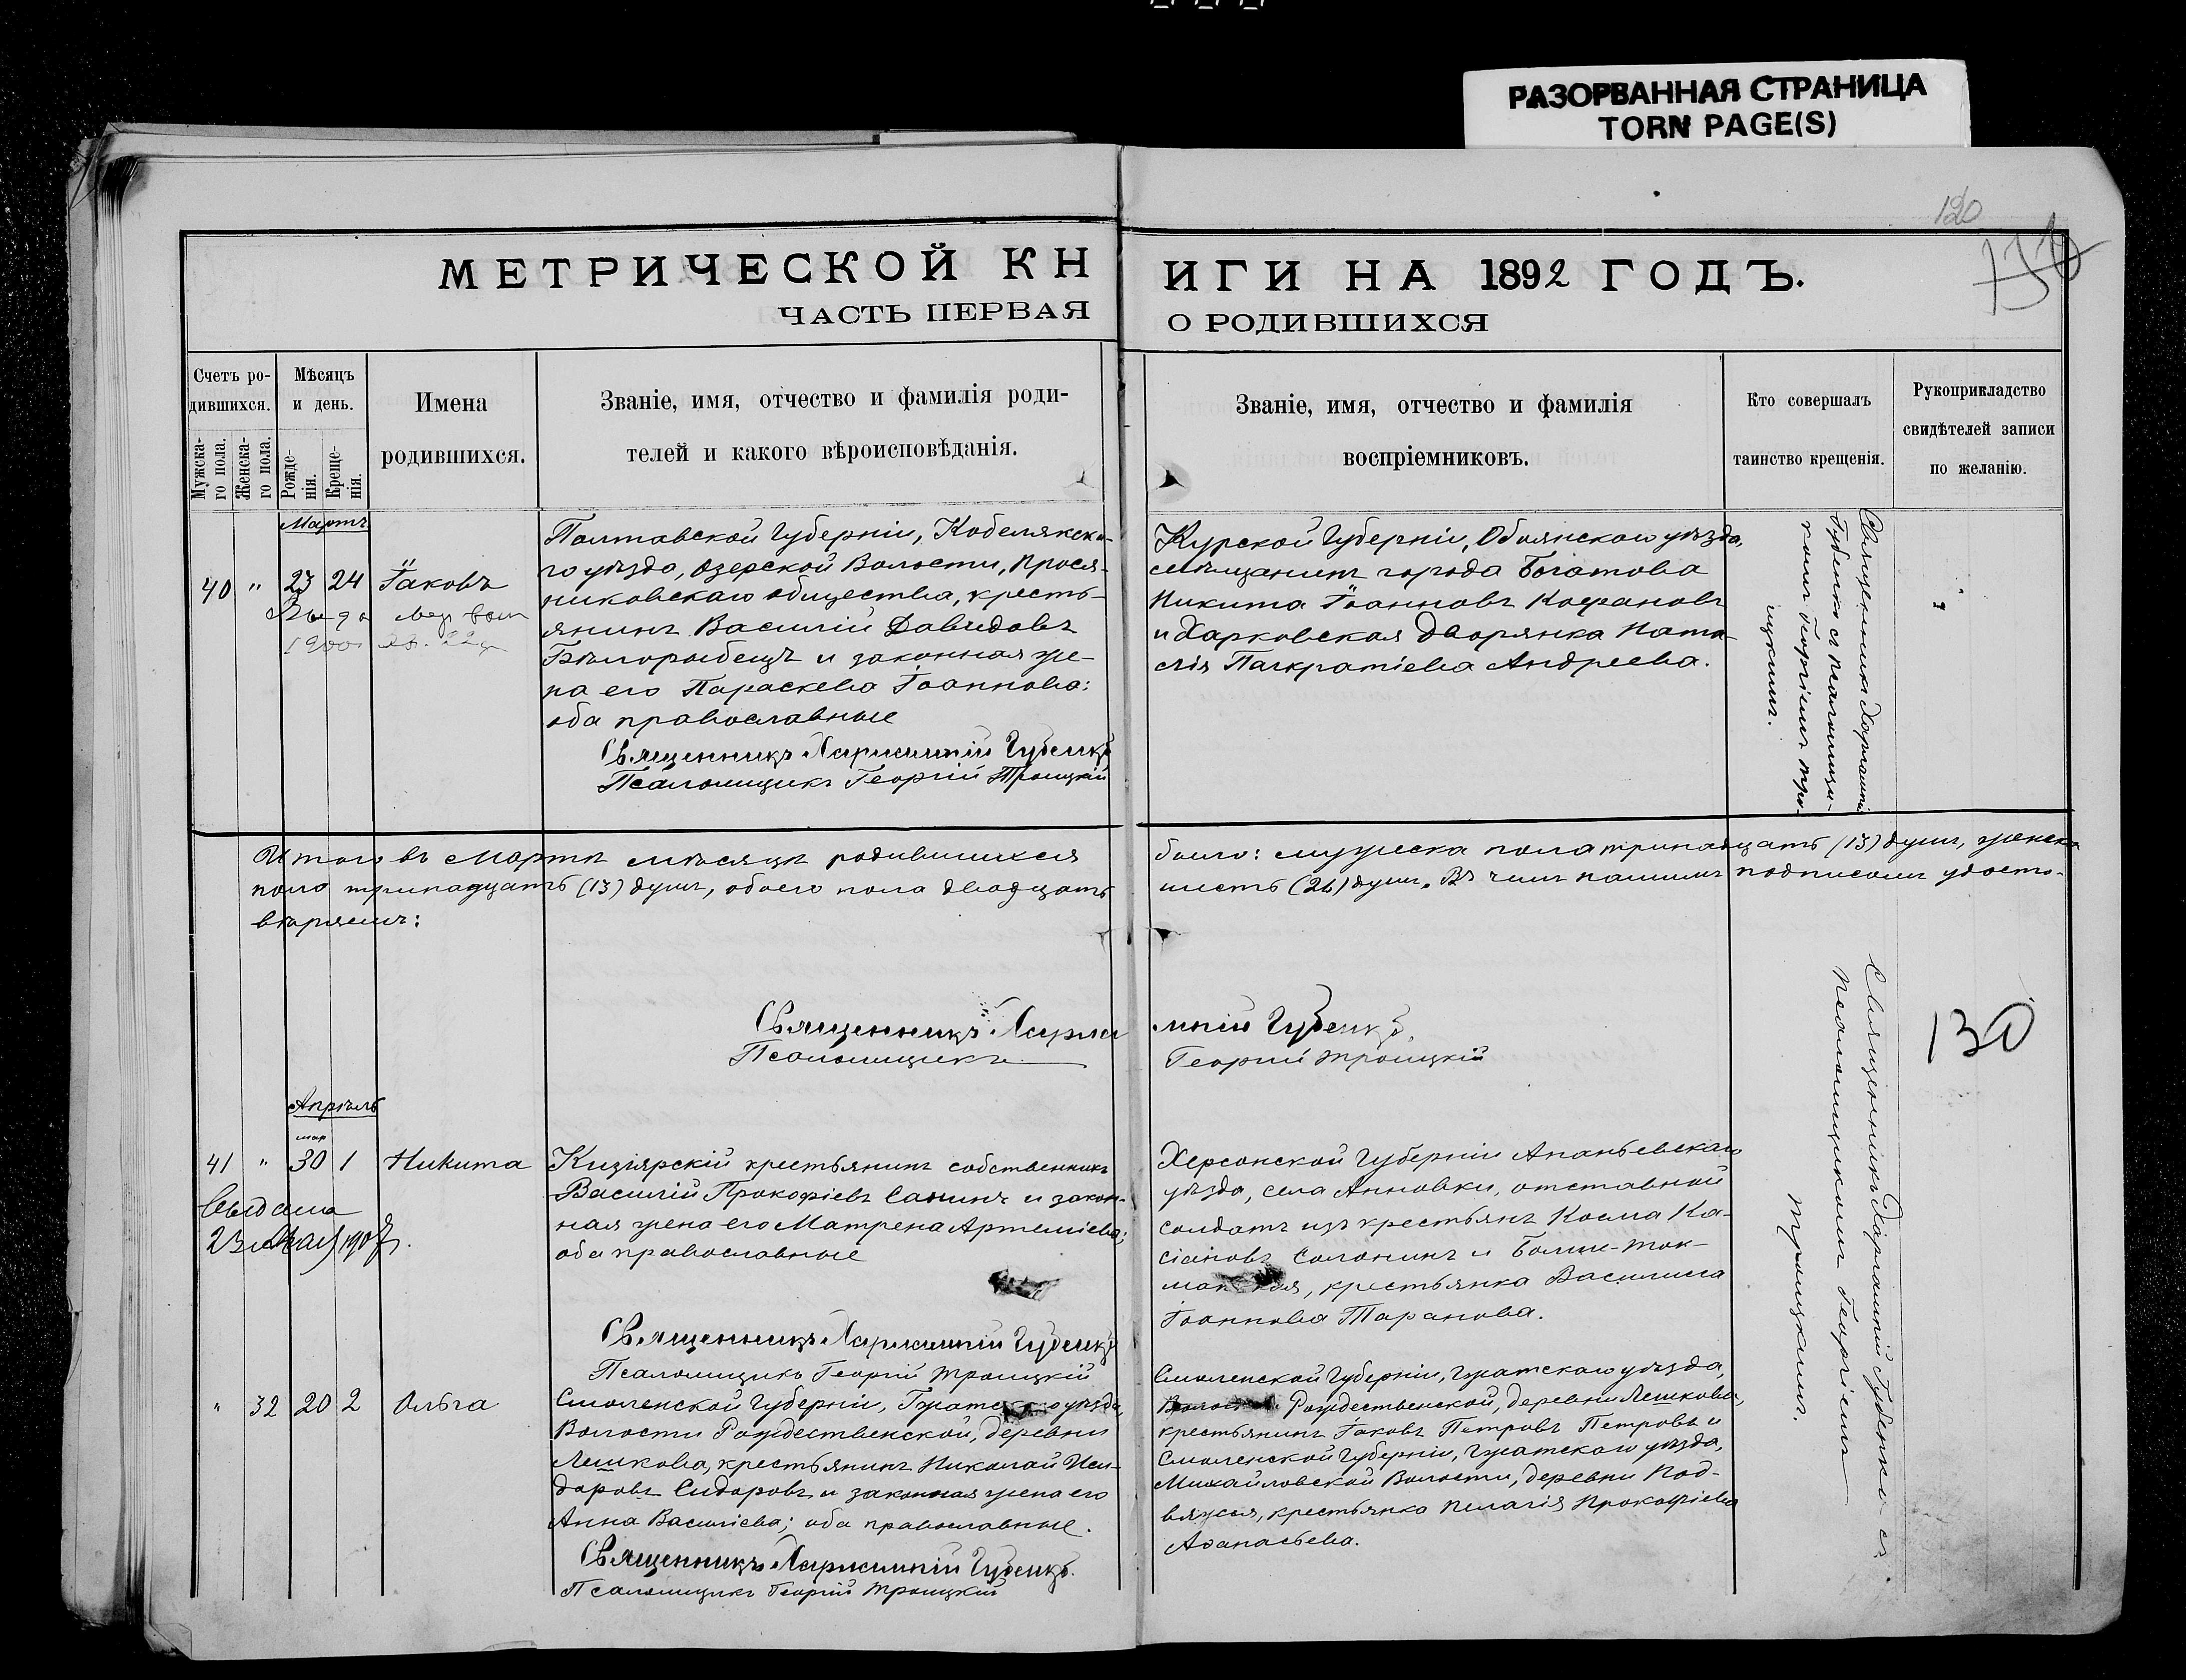 РАЗОРВАННАЯ СТРАНИЦА
TORN PAGE(S)
120
МЕТРИЧЕСКОЙ КНИГИ НА 1892 ГОДЪ.
ЧАСТЬ ПЕРВАЯ О РОДИВШИХСЯ
Счетъ ро-
дившихся.
Мужска-
го пола.
Женска-
го пола.
Мѣсяцъ
и день.
Рожде-
нія.
Креще-
нія.
Имена
родившихся.
Званіе, имя, отчество и фамилія роди-
телей и какого вѣроисповѣданія.
Званіе, имя, отчество и фамилія
воспріемниковъ.
Кто совершалъ
таинство крещенія.
Рукоприкладство
свидѣтелей записи
по желанію.
Мартъ
40 " 23 24 Іаковъ
1900
Полтавской Губерніи, Кобелякска-
го уѣзда, Озерской Волости, Прося-
никовскаго общества, кресть-
янинъ Василій Давидовъ
Бѣлорыбецъ и законная же-
на его Параскева Іоаннова:
оба православные
Священникъ Харлампій Губенко
Псаломщикъ Георгій Троицкій
Курской Губерніи, Обоянскаго уѣзда,
мѣщанинъ города Богатова
Никита Іоанновъ Кофановъ
и Харковская дворянка Ната-
лія Панкратіева Андреева.
Священникъ Харлампій
Губенко съ псаломщи-
комъ Георгіемъ Тро-
ицкимъ.
Итого въ Мартѣ мѣсяцѣ родившихся было: мужеска пола тринадцать (13) душъ, женска
пола тринадцать (13) душъ, обоего пола двадцать шесть (26) душъ. Въ чемъ нашимъ подписомъ удосто-
вѣряемъ:
Священникъ Харлампій Губенко
Псаломщикъ Георгій Троицкій
130
Апрѣль
мар
41 " 30 1 Никита
Выдана
23 Мая 1907
Кизіярскій крестьянинъ собственникъ
Василій Прокофіевъ Санинъ и закон-
ная жена его Матрена Артеміева;
оба православные
Священникъ Харлампій Губенко
Псаломщикъ Георгій Троицкій
Херсонской Губерніи Ананьевскаго
уѣзда, села Анновки, отставной
солдатъ изъ крестьянъ Косма Ка-
сіановъ Солонинъ и Больше-Ток-
мокская, крестьянка Василиса
Іоаннова Таранова.
" 32 20 2 Ольга
Смоленской Губерніи, Гжатскаго уѣзда,
Волости Рождественской, деревни
Лешкова, крестьянинъ Николай Иси-
доровъ Сидоровъ и законная жена его
Анна Василіева; оба православные.
Священникъ Харлампій Губенко.
Псаломщикъ Георгій Троицкій
Смоленской Губерніи, Гжатскаго уѣзда,
Волости Рождественской, деревни Лешкова,
крестьянинъ Іаковъ Петровъ Петровъ и
Смоленской Губерніи, Гжатскаго уѣзда,
Михайловской Волости, деревни Под-
вяжья, крестьянка Пелагія Прокофіева
Аѳанасьева.
Священникъ Харлампій Губенко съ
псаломщикомъ Георгіемъ
Троицкимъ.